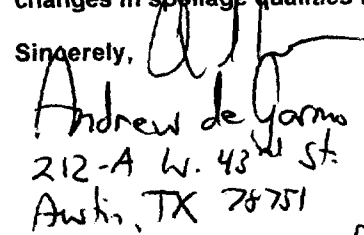 changes in spoilage qualities
Sincerely,
Andrew de Garmo
212-A W. 43rd St.
Austin, TX 78751